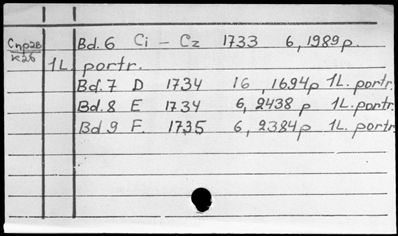 Cnp2B Bd. 6 Ci - Cz 1733 6, 1989 p.
K26
1L. portr.
Bd. 7 D 1734 16, 1694p 1L. portr.
Bd. 8 E 1734 6, 2438 p 1L. portr.
Bd 9 F. 1735 6, 2384 p 1L. portr.